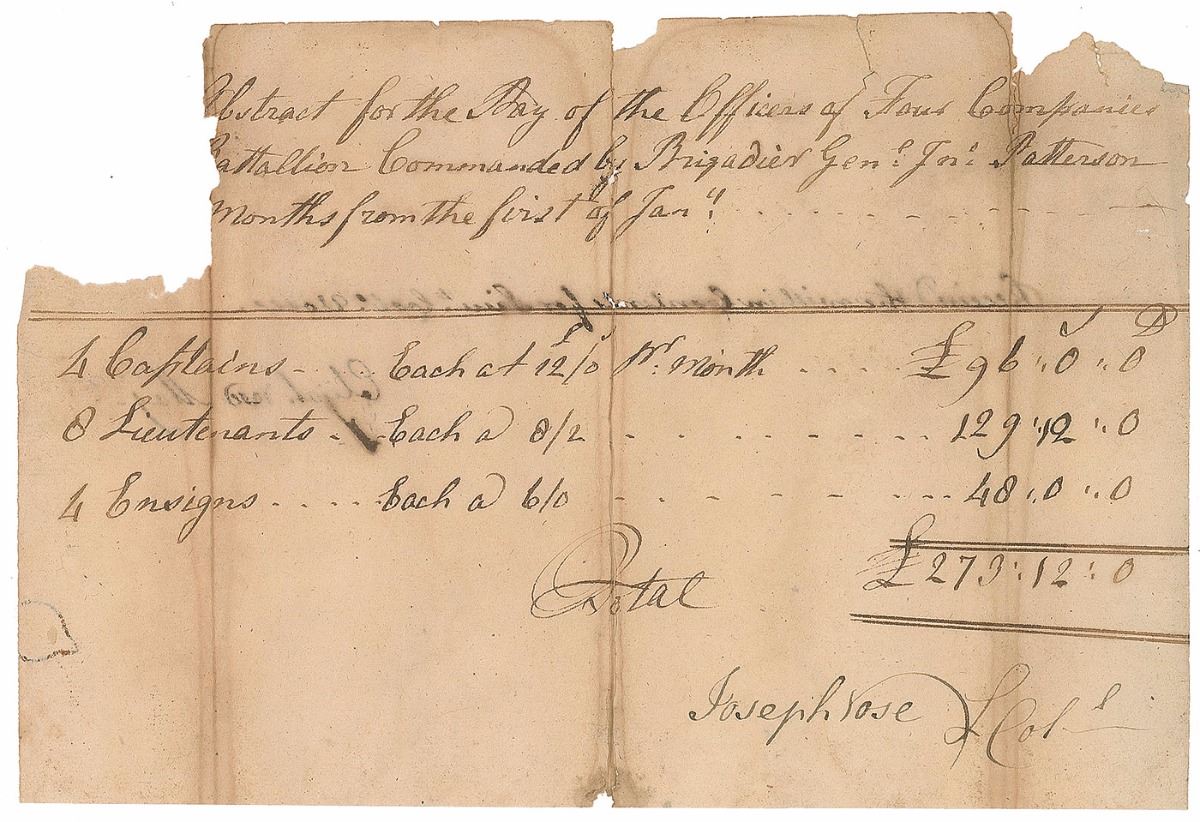 Abstract for the Pay of the Officers of Four Companies
Battallion Commanded by Brigadier Genl. Jno. Patterson
Months from the first of Jany. . . . . . . .
£ S D
4 Captains - Each at 12/0 pr. Month . . . . £96 ". 0 ". 0
8 Lieutenants - - Each a 8/2 - . . - - - - - - 129 ". 12 ". 0
4 Ensigns . . . . Each a 6/0 - . . - - - - ... 48 ". 0 ". 0
Total £273 ". 12 ". 0
Joseph Vose LCol.l